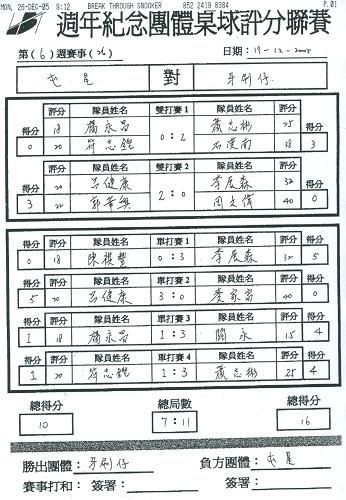 MON, 26-DEC-05 9:12 BREAK THROUGH SNOOKER 852 2419 8384 P.01
週年紀念團體桌球評分聯賽
第(6)週賽事(26) 日期: 19-12-2005
屯星 對 牙刷仔
評分 隊員姓名 雙打賽1 隊員姓名 評分
得分 18 楊永昌 0:2 蕭志彬 25 得分
0 20 符志銳 石漢南 28 3
評分 隊員姓名 雙打賽2 隊員姓名 評分
得分 20 呂健康 2:0 李展森 32 得分
3 22 郭華興 周文偉 40 0
得分 評分 隊員姓名 單打賽1 隊員姓名 評分 得分
0 18 陳祺豐 0:3 李展森 32 5
得分 評分 隊員姓名 單打賽2 隊員姓名 評分 得分
5 20 呂健康 3:0 黃家富 40 0
得分 評分 隊員姓名 單打賽3 隊員姓名 評分 得分
1 18 楊永昌 1:3 關永 15 4
得分 評分 隊員姓名 單打賽4 隊員姓名 評分 得分
1 20 符志銳 1:3 蕭志彬 25 4
總得分 總局數 總得分
10 7:11 16
勝出團體: 牙刷仔 負方團體: 屯星
賽事打和: 簽署: 簽署: